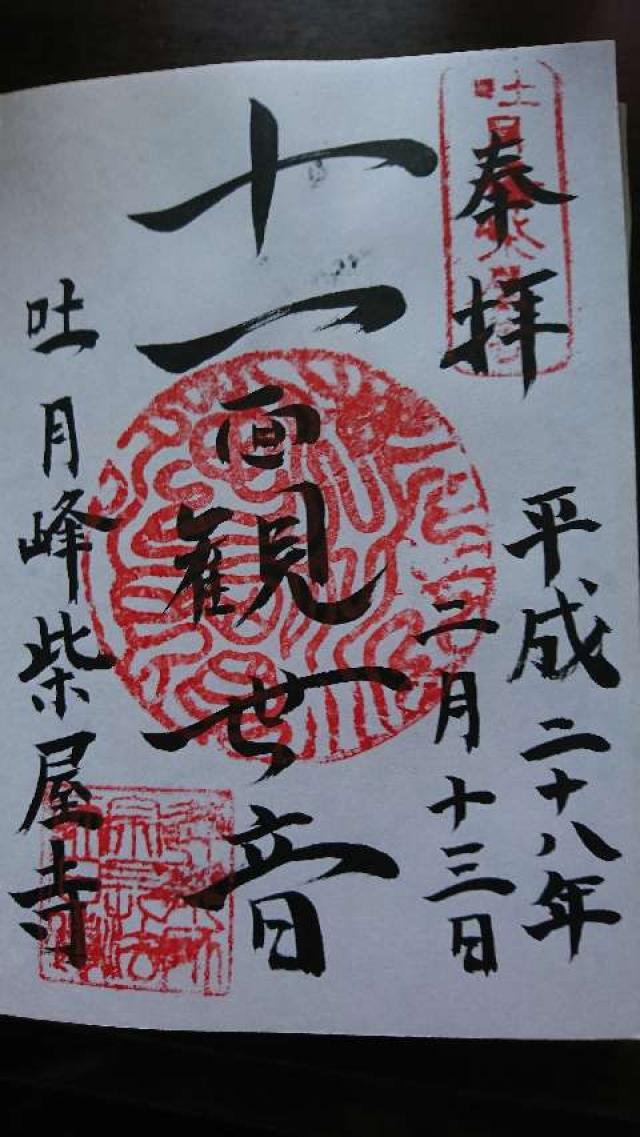 奉拝
平成二十八年
二月十三日
十一面観世音
吐月峰柴屋寺